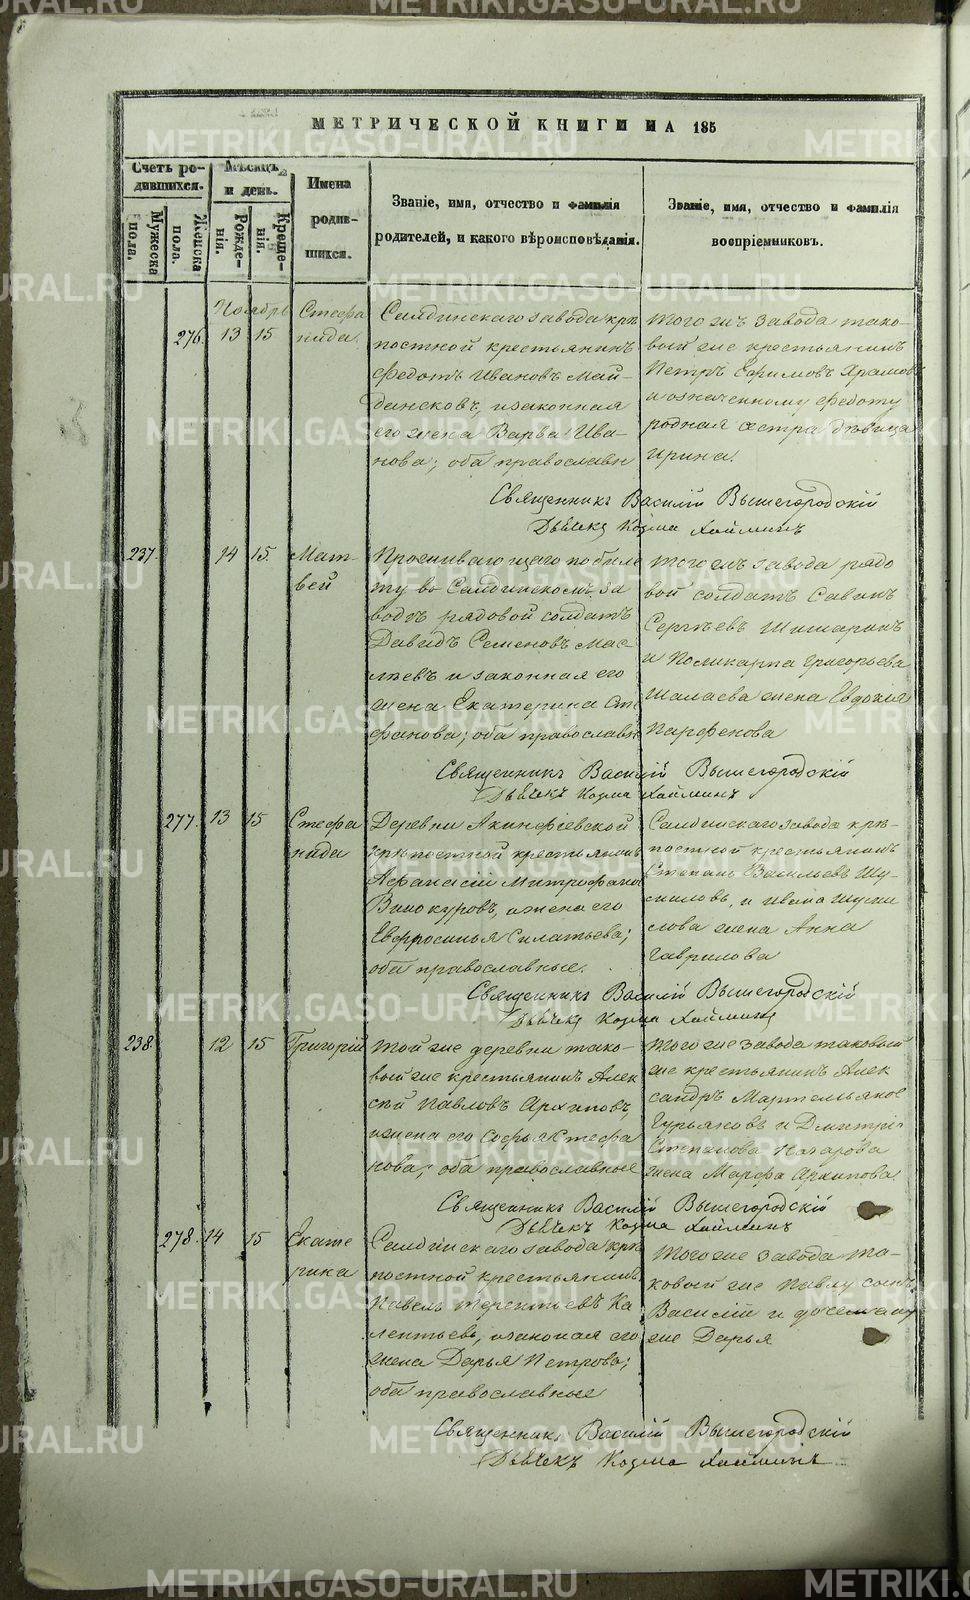 МЕТРИЧЕСКОЙ КНИГИ НА 185
Счетъ ро-
дившихся.
Мужеска
пола.
Женска
пола.
Мѣсяцъ
и день.
Рожде-
нія.
Креще-
нія.
Имена
родив-
шихся.
Званіе, имя, отчество и фамилія
родителей, и какого вѣроисповѣданія.
Званіе, имя, отчество и фамилія
воспріемниковъ.
Ноябрь
276. 13 15
Стефа
нида.
Салдинскаго завода крѣ
постной крестьянинъ
Федотъ Ивановъ Май-
дансковъ, и законная
его жена Варва Ива-
нова; оба православн
того жъ завода тако-
вый же крестьянинъ
Петръ Ефимовъ Храмов
и означенному Федоту
родная сестра дѣвица
Ирина.
Священникъ Василій Вышегородскій
Дьячекъ Козма Хайминъ
237. 14 15.
Мат-
вей
Проживающаго по биле
ту въ Салдинскомъ за
водѣ рядовой солдатъ
Давидъ Семеновъ Мас-
лѣевъ и законная его
жена Екатерина Сте
фанова; оба православн
того жъ завода рядо
вой солдатъ Савинъ
Сергѣевъ Шишаринъ
и Поликарпа Григорьева
Шалаева жена Евдокія
Парфенова
Священникъ Василій Вышегородскій
Дьячекъ Козма Хайминъ
277. 13 15
Стефа
нида
Деревни Акинфіевской
крѣпостной крестьянинъ
Афанасій Митрофано
Винокуровъ, и жена его
Евфросинья Силатьева;
оба православные.
Салдинскаго завода крѣ-
постной крестьянинъ
Степанъ Васильевъ Шу-
миловъ, и Ивана Шуми
лова жена Анна
Гаврилова
Священникъ Василій Вышегородскій
Дьячекъ Козма Хайминъ
238. 12 15
Григорій
той же деревни тако-
вый же крестьянинъ Алек
сѣй Павловъ Архиповъ,
и жена его Софья Стефа
нова; оба православные
того же завода таковый
же крестьянинъ Алек
сандръ Мартемьянов
Гурьяновъ и Дмитрія
Степанова Назарова
жена Марфа Архипова
Священникъ Василій Вышегородскій
Дьячекъ Козма Хайминъ
278. 14 15
Екате
рина
Салдинскаго завода крѣ
постной крестьянинъ
Павелъ Терентьевъ Ка
лентьевъ, и законая его
жена Дарья Петрова;
оба православные
того же завода та-
ковый же Павлу сынъ
Василій и дочь ему
же Дарья
Священникъ Василій Вышегородскій
Дьячекъ Козма Хайминъ
METRIKI.GASO-URAL.RU